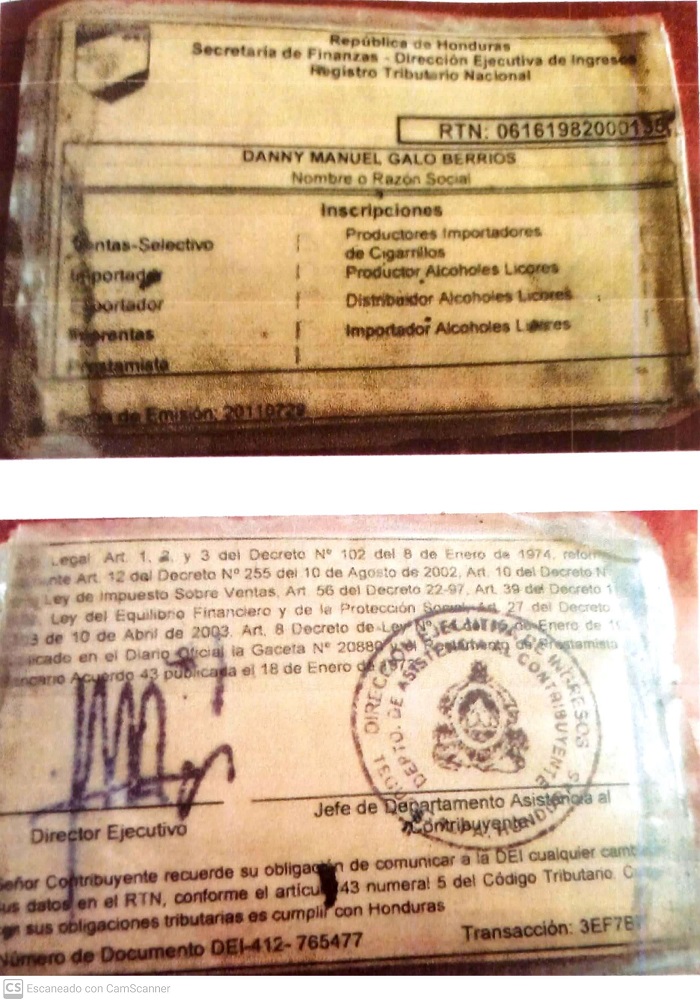 República de Honduras
Secretaría de Finanzas - Dirección Ejecutiva de Ingresos
Registro Tributario Nacional
RTN: 06161982000135
DANNY MANUEL GALO BERRIOS
Nombre o Razón Social
Inscripciones
Ventas-Selectivo
Productores Importadores
de Cigarrillos
Importador
Productor Alcoholes Licores
Exportador
Distribuidor Alcoholes Licores
Imprentas
Importador Alcoholes Licores
Prestamista
de Emisión: 20110729
Legal Art. 1, 2, y 3 del Decreto Nº 102 del 8 de Enero de 1974, reform
nte Art. 12 del Decreto Nº 255 del 10 de Agosto de 2002, Art. 10 del Decreto N
Ley de Impuesto Sobre Ventas, Art. 56 del Decreto 22-97, Art. 39 del Decreto 1
Ley del Equilibrio Financiero y de la Protección Social, Art. 27 del Decreto
de 10 de Abril de 2003. Art. 8 Decreto de Ley Nº de Enero de
icado en el Diario Oficial la Gaceta Nº 20880 y el Reglamento de Prestamista
ncario Acuerdo 43 publicada el 18 de Enero de 1973
DIRECCIÓN EJECUTIVA DE INGRESOS
DEPTO. DE ASISTENCIA AL CONTRIBUYENTE
Director Ejecutivo
Jefe de Departamento Asistencia al
Contribuyente
Señor Contribuyente recuerde su obligación de comunicar a la DEI cualquier camb
sus datos en el RTN, conforme el artículo 43 numeral 5 del Código Tributario. C
con sus obligaciones tributarias es cumplir con Honduras
Número de Documento DEI-412- 765477
Transacción: 3EF7B
CS Escaneado con CamScanner